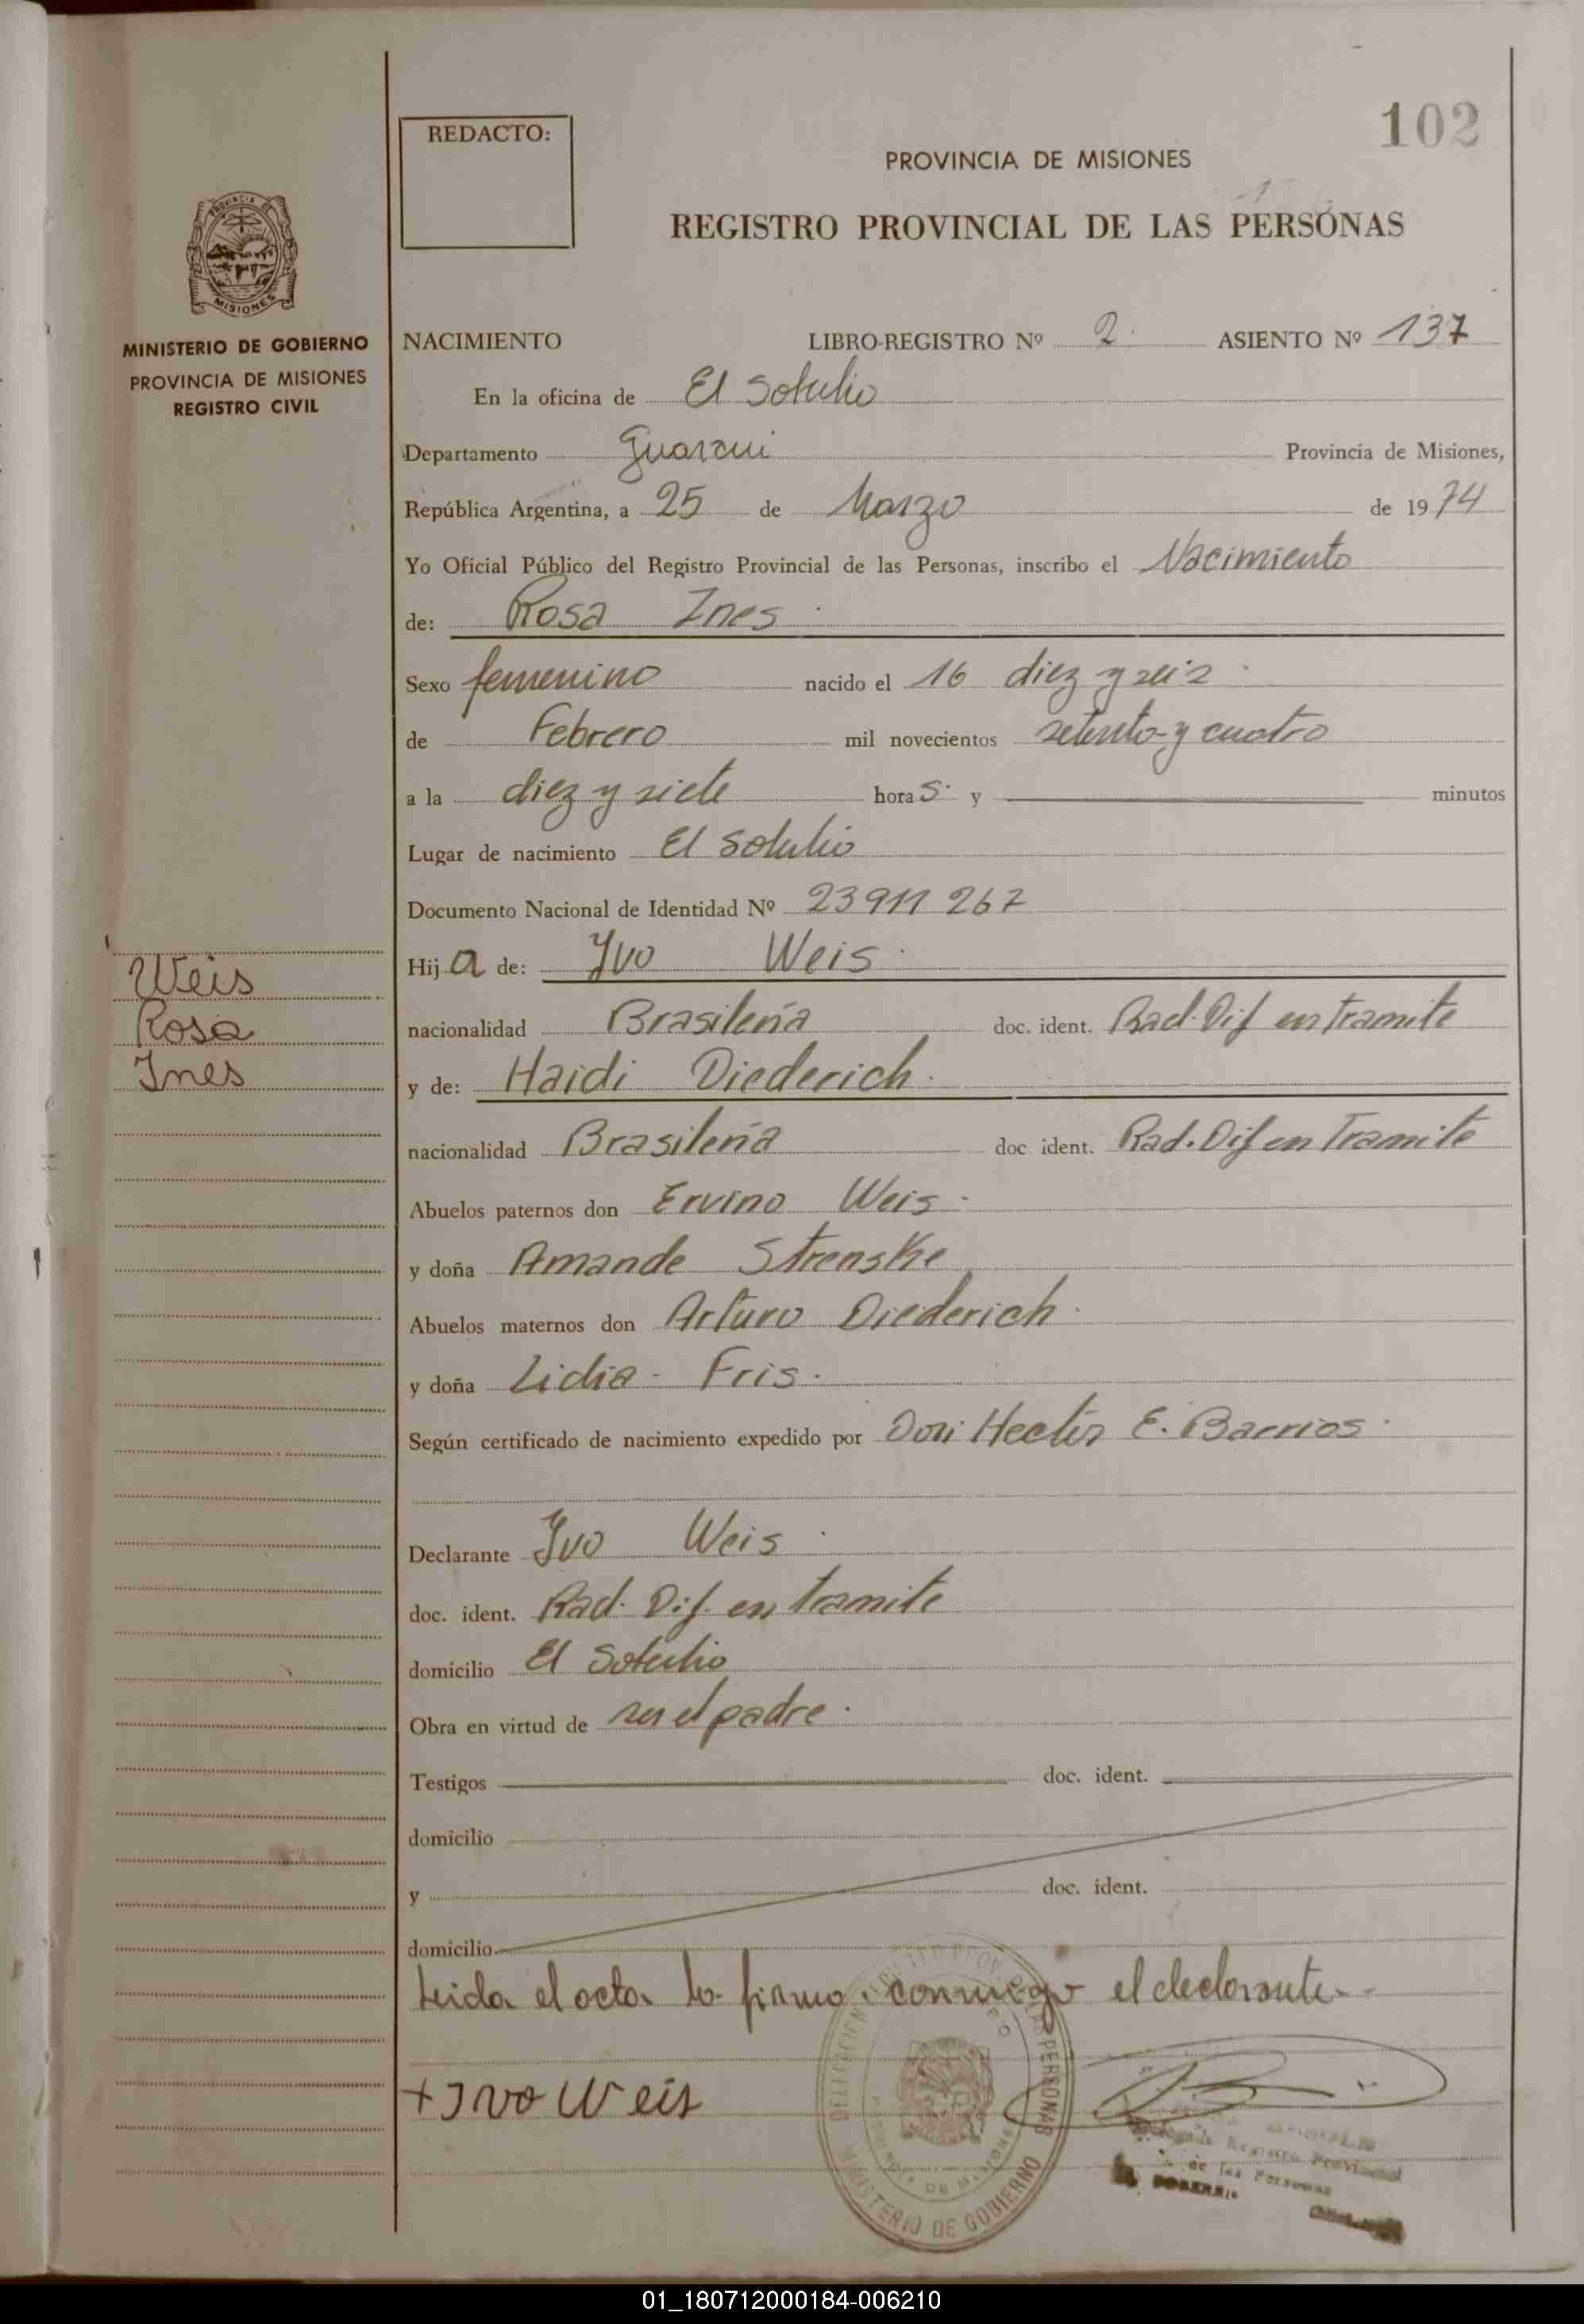 102
REDACTO:
PROVINCIA DE MISIONES
REGISTRO PROVINCIAL DE LAS PERSONAS
PROVINCIA DE
MISIONES
MINISTERIO DE GOBIERNO
PROVINCIA DE MISIONES
REGISTRO CIVIL
NACIMIENTO LIBRO-REGISTRO Nº 2 ASIENTO Nº 137
En la oficina de El Soberbio
Departamento Guarani Provincia de Misiones,
República Argentina, a 25 de Marzo de 1974
Yo Oficial Público del Registro Provincial de las Personas, inscribo el Nacimiento
de: Rosa Ines
Sexo femenino nacido el 16 diez y seis
de Febrero mil novecientos setenta y cuatro
a la diez y siete horas y minutos
Lugar de nacimiento El Soberbio
Documento Nacional de Identidad Nº 23 911 267
Hija de: Yvo Weis
Weis
Rosa
Ines
nacionalidad Brasileña doc. ident. Rad. Dif en tramite
y de: Haidi Diederich
nacionalidad Brasileña doc ident. Rad. Dif en Tramite
Abuelos paternos don Ervino Weis
y doña Amande Strenske
Abuelos maternos don Arturo Diederich
y doña Lidia Fris
Según certificado de nacimiento expedido por Don Hector E. Barrios
Declarante Yvo Weis
doc. ident. Rad. Dif. en tramite
domicilio El Soberbio
Obra en virtud de ser el padre
Testigos doc. ident.
domicilio
y doc. ident.
domicilio
Leida el acta la firma conmigo el declarante
+ Ivo Weis
DE LAS PERSONAS
MINISTERIO DE GOBIERNO
Registro Provincial
de las Personas
01_180712000184-006210